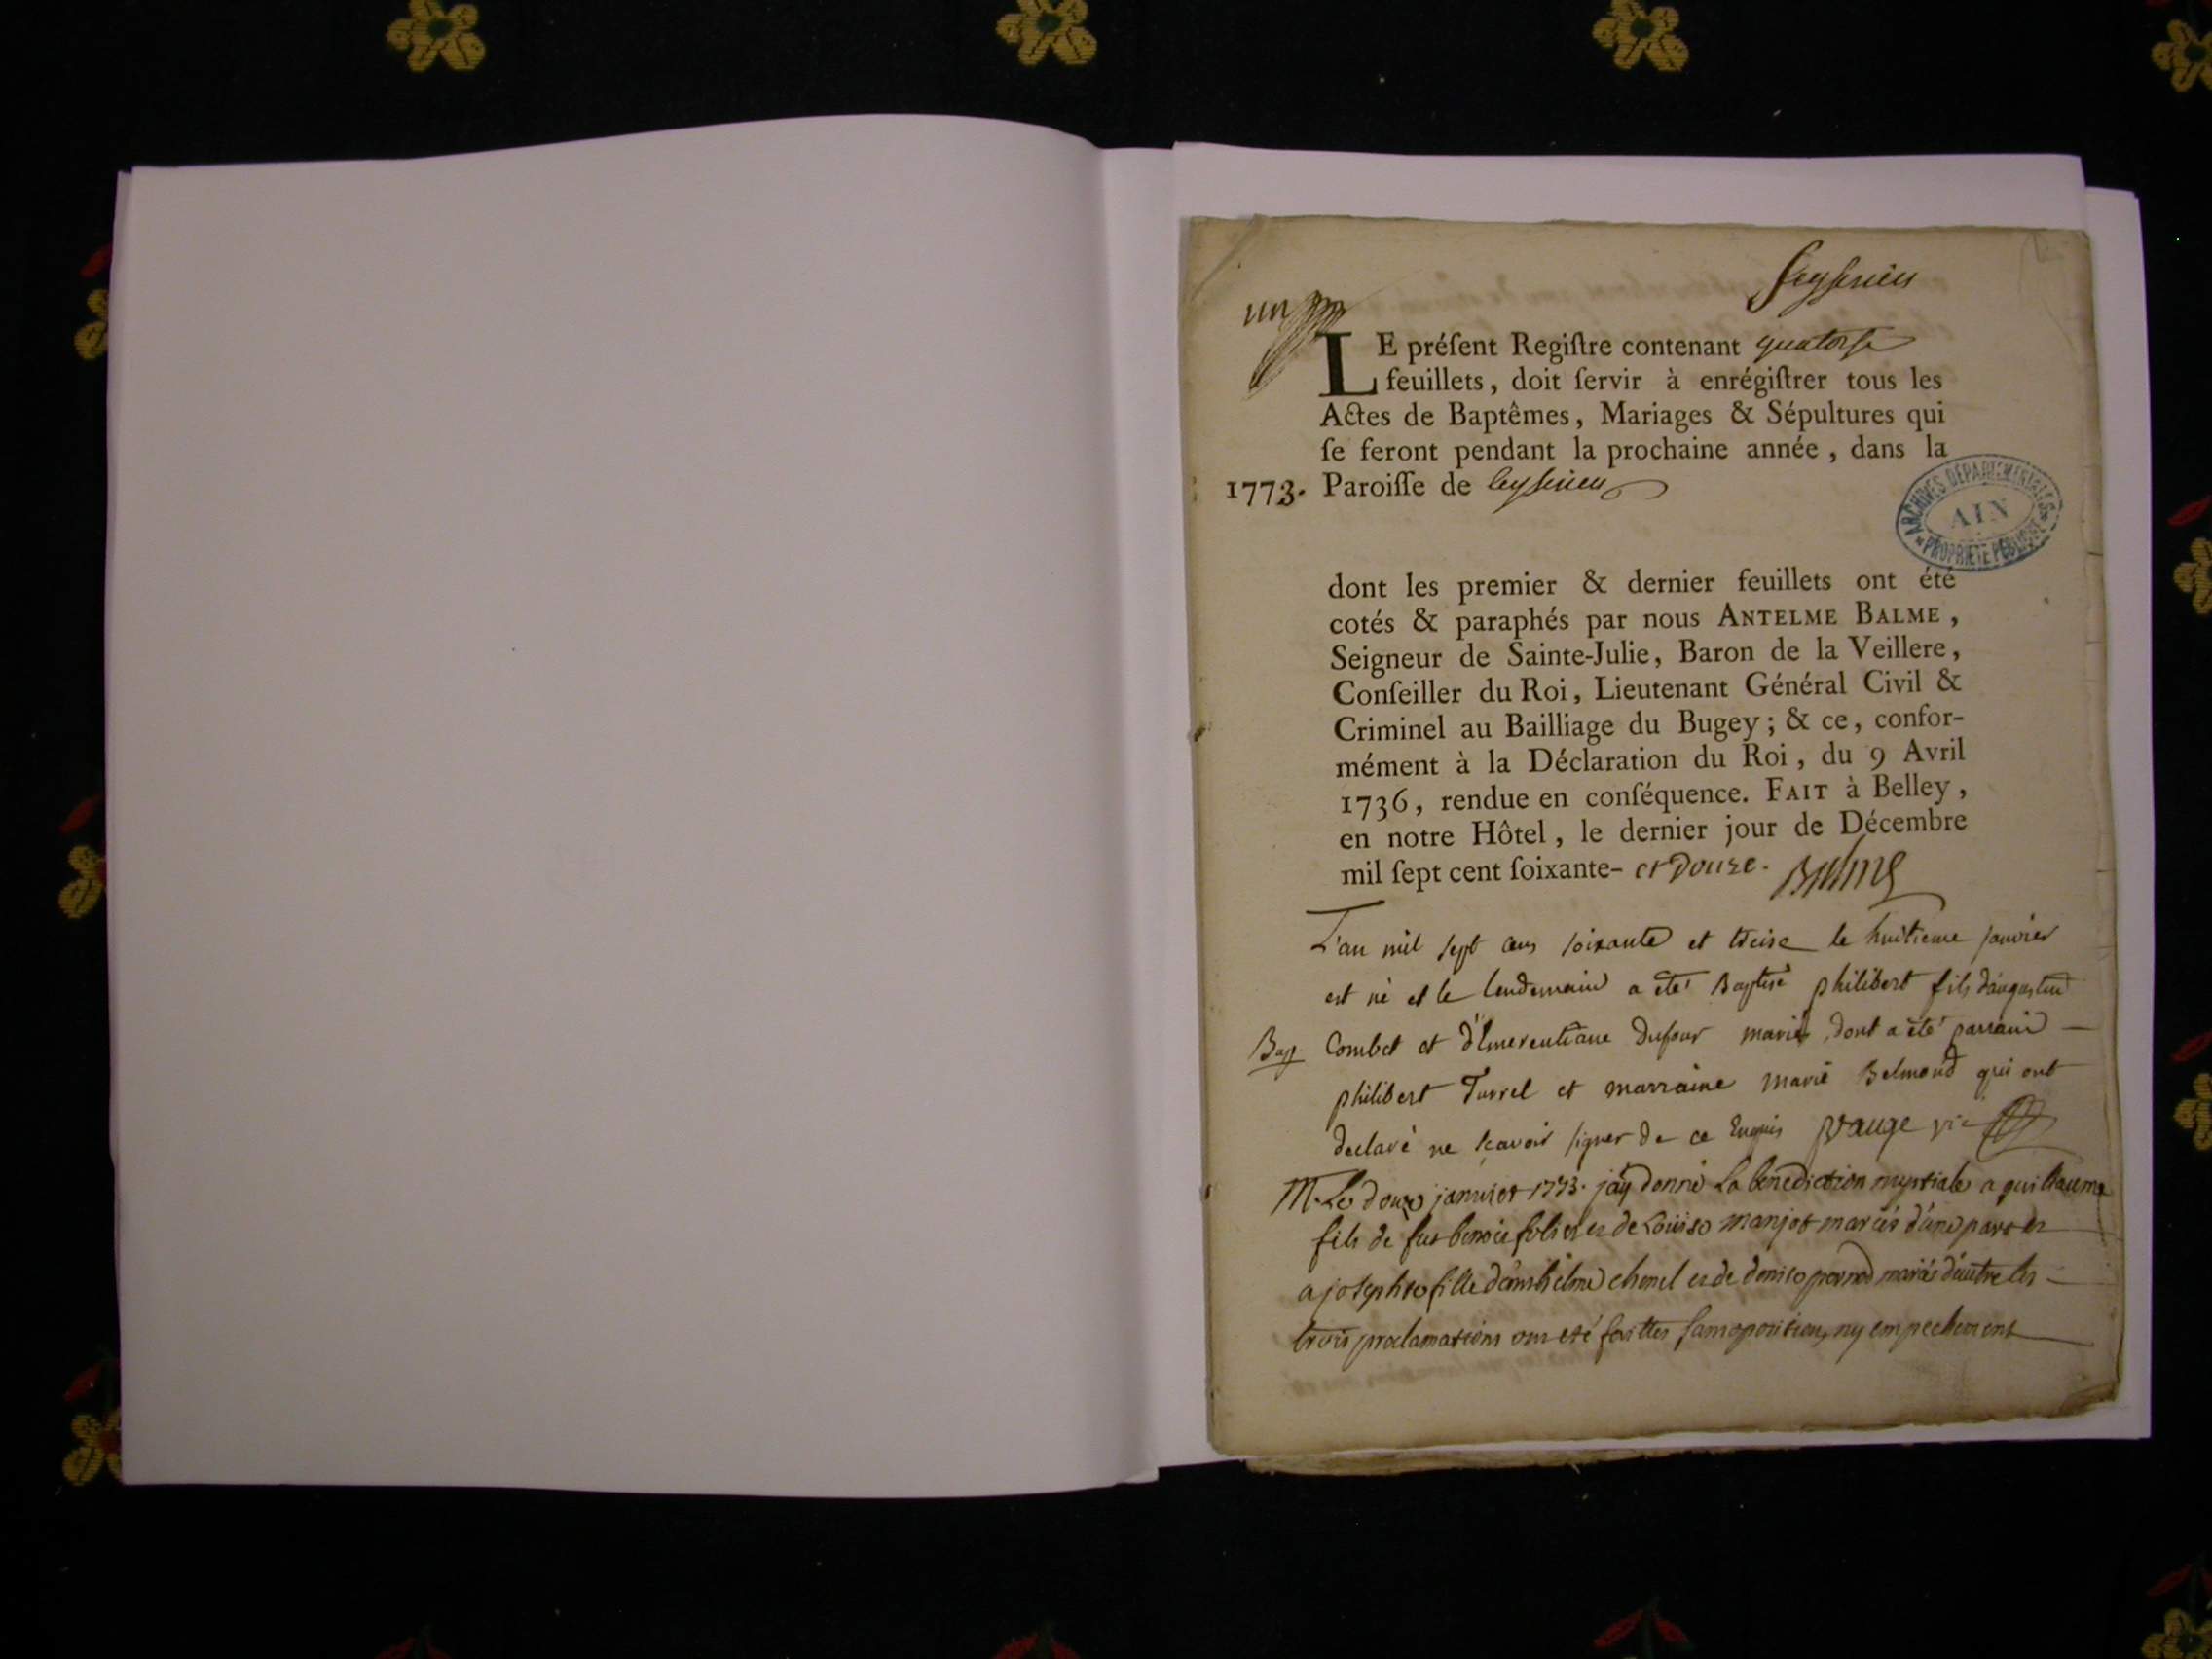 Ceyserieu
un
LE préſent Regiſtre contenant quatorſe
feuillets, doit ſervir à enrégiſtrer tous les
Actes de Baptêmes, Mariages & Sépultures qui
ſe feront pendant la prochaine année, dans la
1773. Paroiſſe de Ceyserieu
ARCHIVES DÉPARTEMENTALES
AIN
PROPRIÉTÉ PUBLIQUE
dont les premier & dernier feuillets ont été
cotés & paraphés par nous ANTELME BALME,
Seigneur de Sainte-Julie, Baron de la Veillere,
Conſeiller du Roi, Lieutenant Général Civil &
Criminel au Bailliage du Bugey; & ce, confor-
mément à la Déclaration du Roi, du 9 Avril
1736, rendue en conſéquence. FAIT à Belley,
en notre Hôtel, le dernier jour de Décembre
mil ſept cent ſoixante- et Douze. Balme
L'an mil sept cens soixante et treise le huitieme janvier
est né et le lendemain a été Baptisé philibert fils d'augustin
Bap. Combet et d'Emerentiane Dufour mariés, dont a été parrain
philibert Turrel et marraine marie Belmond qui ont
declaré ne scavoir signer de ce Enquis Vauge vic
M. Le douze janvier 1773. jay donné La benediction nuptiale a guillaume
fils de feu benoit et de Louise manjot mariés d'une part et
a josephte fille d'anthelme chenel et de denise pernod mariés d'autre les
trois proclamations ont eté faittes sans oposition, ny empechement